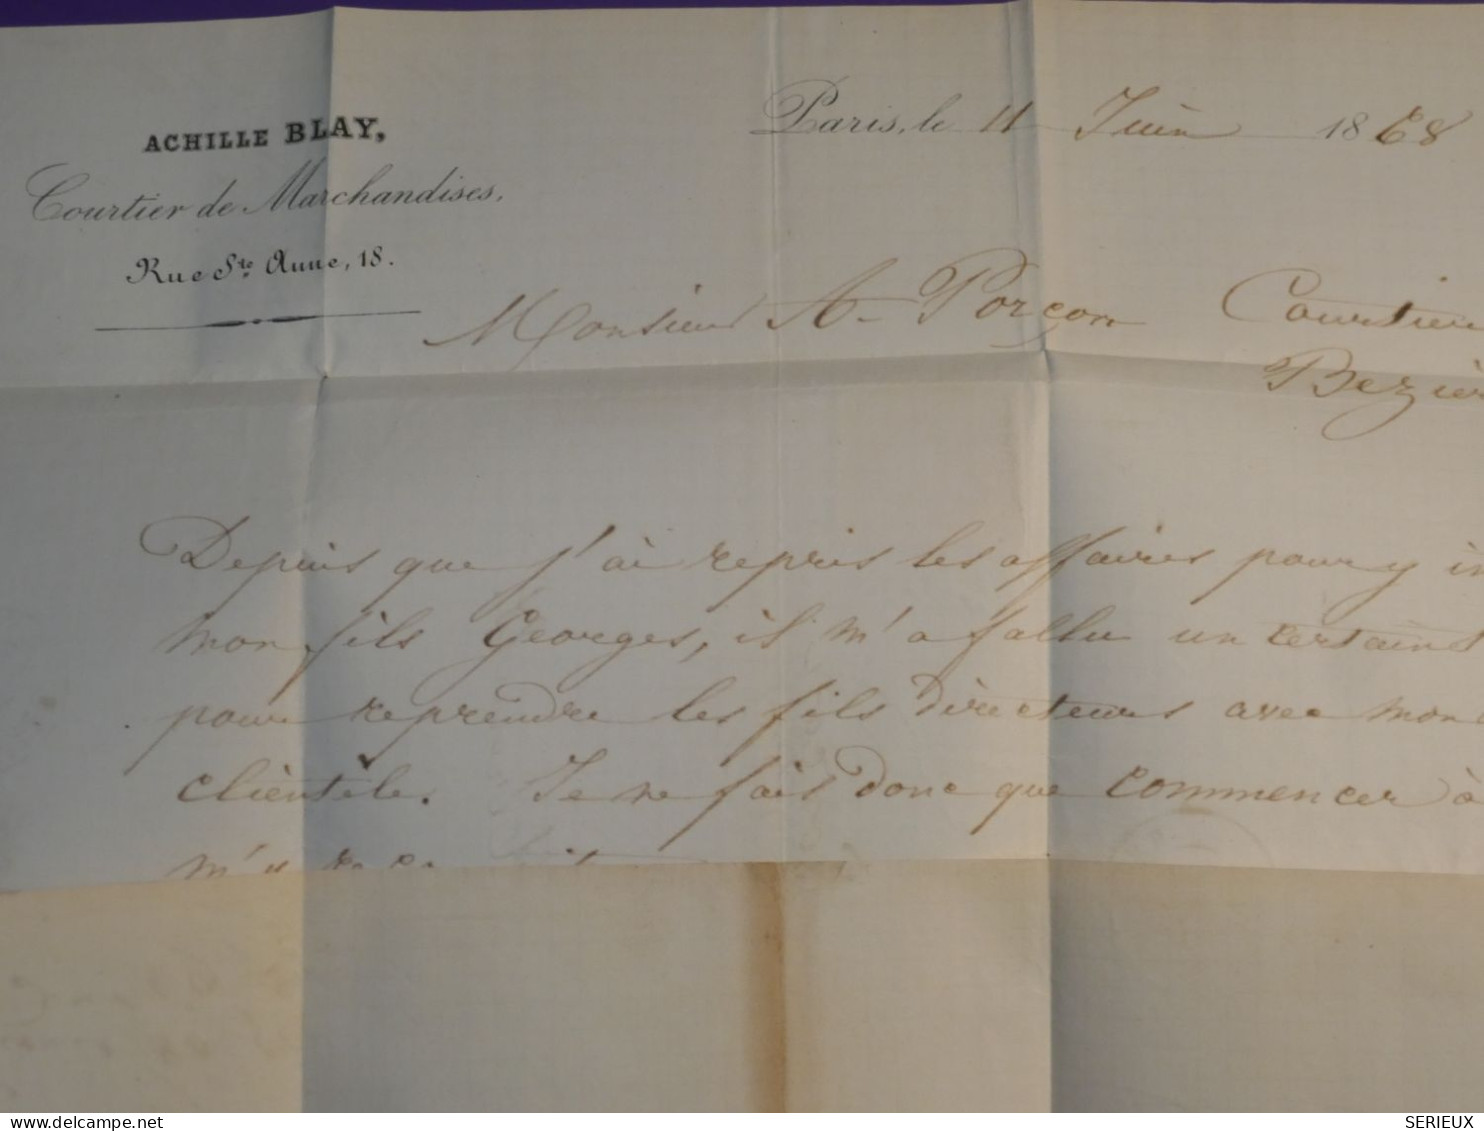 ACHILLE BLAY,
Courtier de Marchandises,
Rue Ste Anne, 18.
Paris, le 11 Juin 1868
Monsieur A. Porçon Courtier
Bezièr
Depuis que j'ai repris les affaires pour y in
mon fils Georges, il m'a fallu un certains
pour reprendre les fils directeurs avec mon
clientèle. Je ne fais donc que commencer à
delcampe.net
SERIEUX